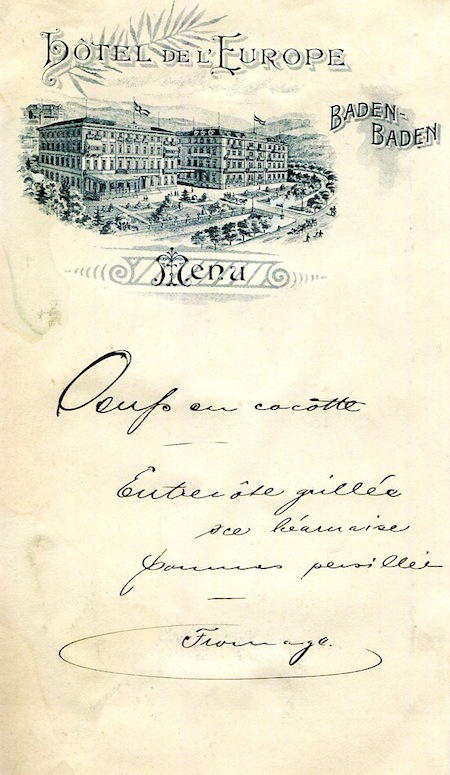 HÔTEL DE L'EUROPE
BADEN-
BADEN
Menu
Oeufs en cocotte
Entrecôte grillée
sce béarnaise
pommes persillées
Fromage.